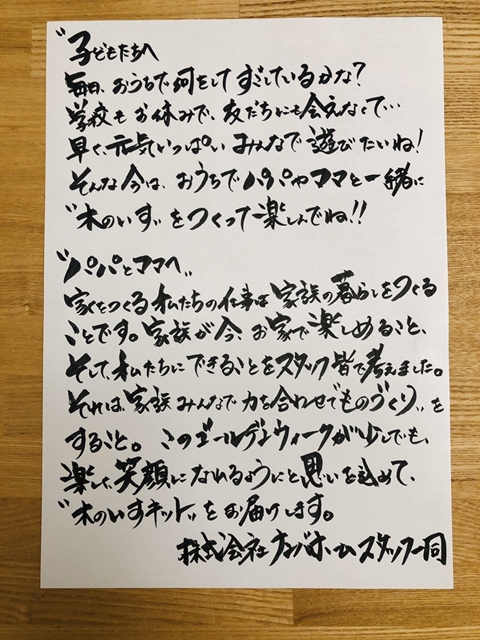 〝子どもたちへ
毎日、おうちで何をしてすごしているかな?
学校もお休みで、友だちにも会えなくて…
早く、元気いっぱい みんなで遊びたいね!
そんな今は、おうちでパパやママと一緒に
〝木のいす〟をつくって楽しんでね!!
〝パパとママへ〟
家をつくる私たちの仕事は家族の暮らしをつくる
ことです。家族が今、お家で楽しめること、
そして、私たちにできることをスタッフ皆で考えました。
それは、家族みんなで力を合わせて〝ものづくり〟を
すること。このゴールデンウィークが少しでも、
楽しく、笑顔になれるようにと思いを込めて、
〝木のいすキット〟をお届けします。
株式会社 ナンバホーム スタッフ一同